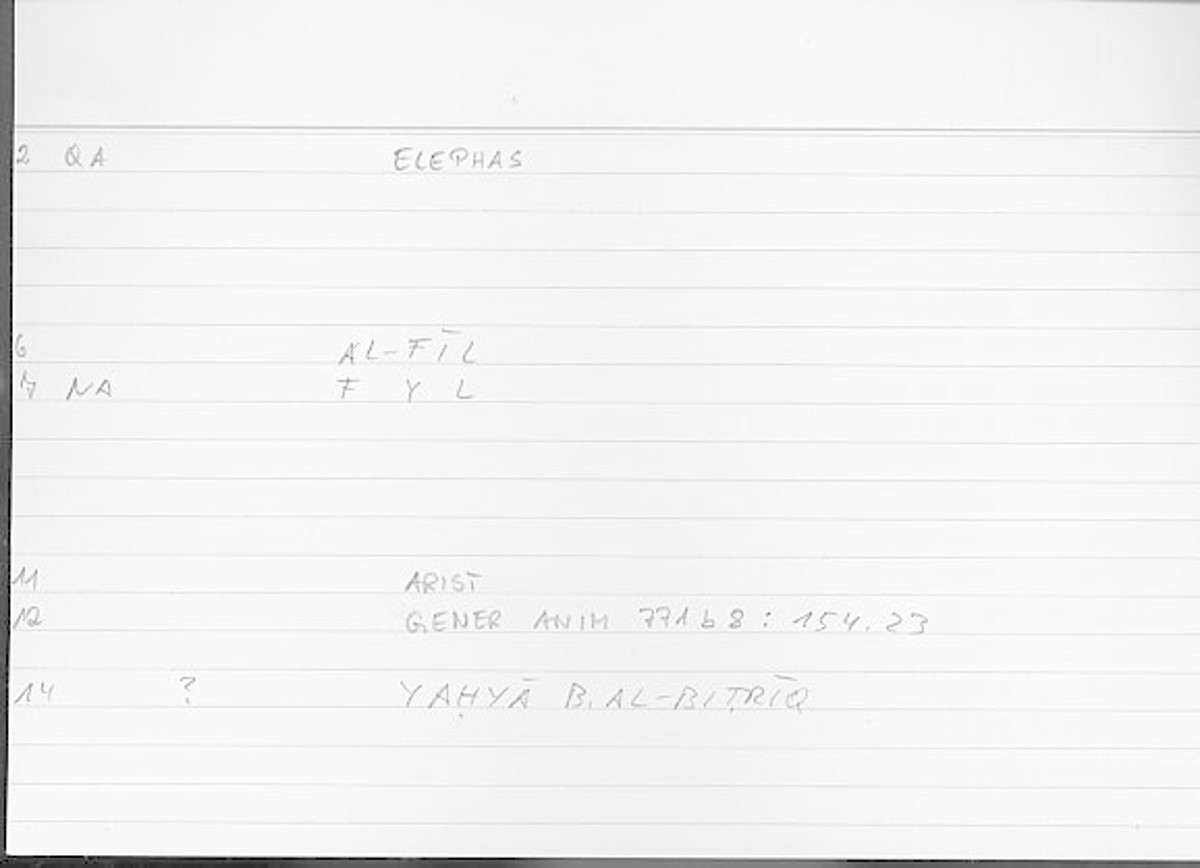 2 QA ELEPHAS
6 AL-FĪL
7 NA F Y L
11 ARIST
12 GENER ANIM 771b8 : 154.23
14 ? YAḤYĀ B. AL-BIṬRĪQ